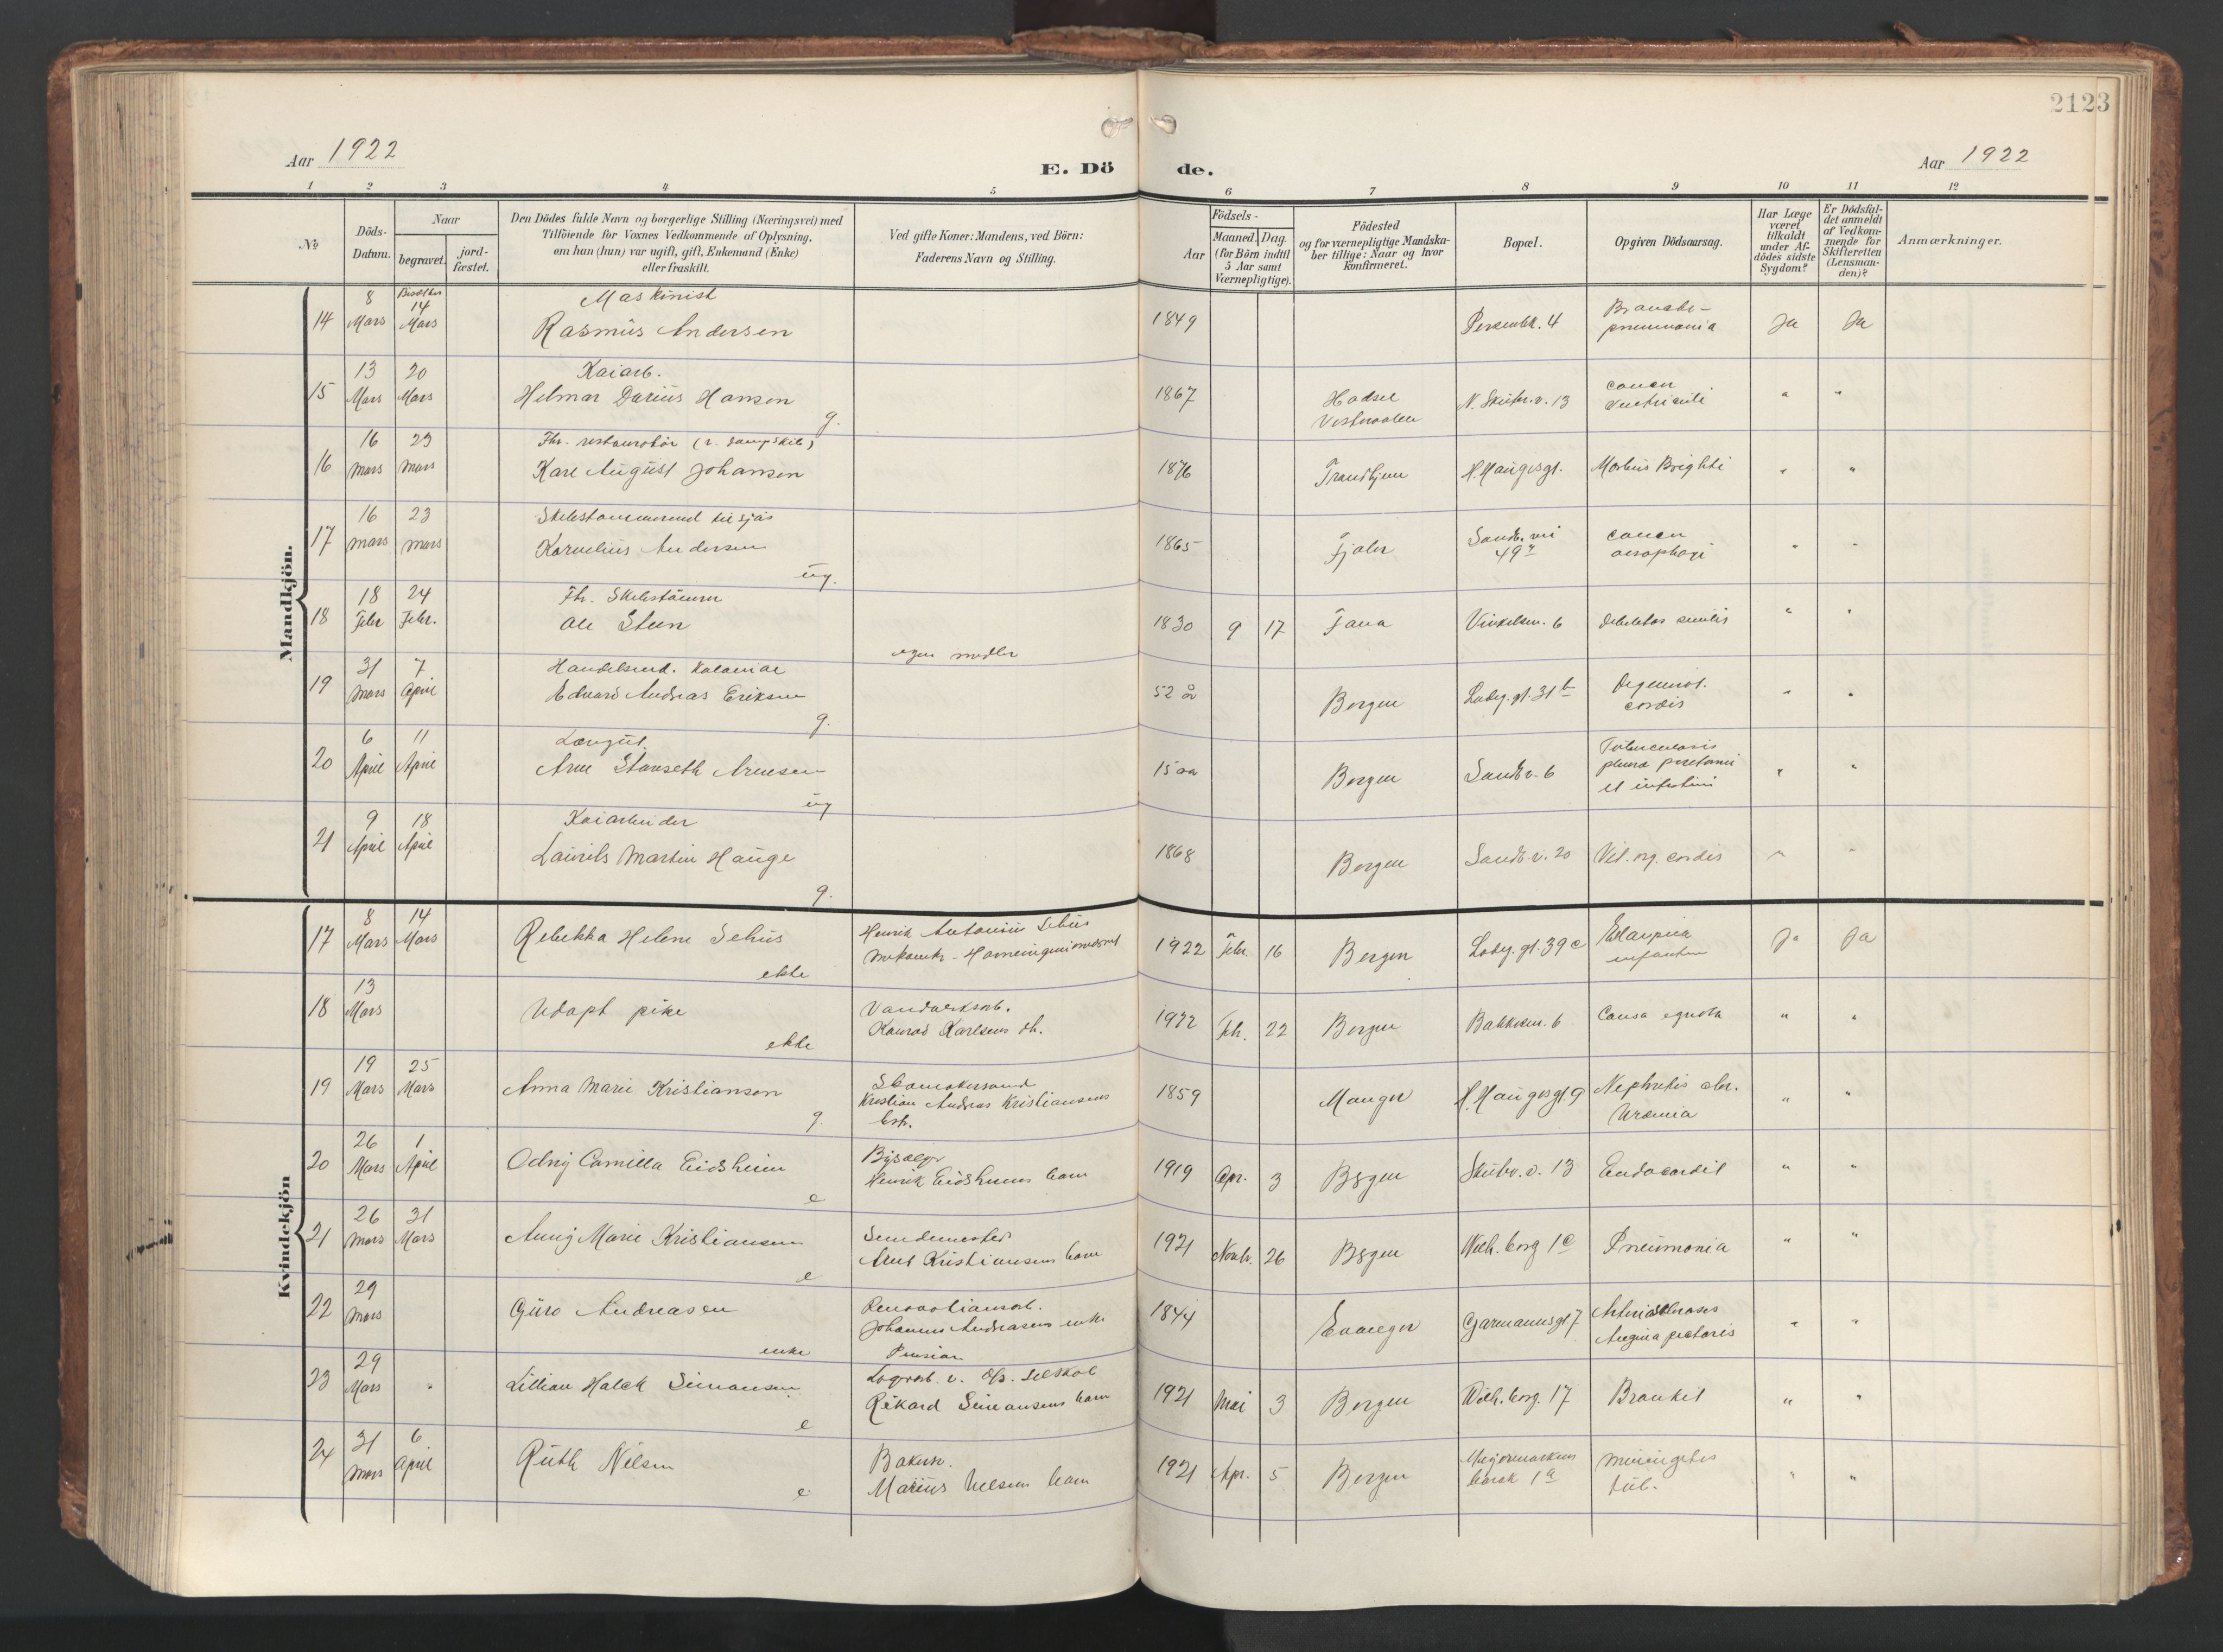 2123
Aar 1922
E. Dö de.
Aar 1922
1 2 3 4 5 6 7 8 9 10 11 12
No
Döds-Datum.
Naar
begravet.
jord-fæstet.
Den Dödes fulde Navn og borgerlige Stilling (Næringsvei) med
Tilföiende for Voxnes Vedkommende af Oplysning,
om han (hun) var ugift, gift, Enkemand (Enke)
eller fraskilt.
Ved gifte Koner: Mandens, ved Börn:
Faderens Navn og Stilling.
Födsels-
Aar
Maaned. Dag.
(for Börn indtil
5 Aar samt
Værnepligtige).
Födested
og for værnepligtige Mandska-
ber tillige: Naar og hvor
konfirmeret.
Bopæl.
Opgiven Dödsaarsag.
Har Læge
været
tilkaldt
under Af-
dödes sidste
Sygdom?
Er Dödsfal-
det anmeldt
af Vedkom-
mende for
Skifteretten
(Lensman-
den)?
Anmærkninger.
Mandkjön.
14 8 Mars 14 Mars Maskinist
Rasmus Andersen 1849 4 Broncho-
pneumonia Ja Ja
15 13 Mars 20 Mars Kaiarb.
Helmar Darius Hansen g. 1867 Hadsel
Vesteraalen N. Skutev. v. 13 cancer
ventriculi " "
16 16 Mars 23 Mars Fhv. restauratör
Karl August Johansen 1876 Trondhjem H. Haugesgt. Morbus Brighti " "
17 16 Mars 23 Mars
Kornelius Andersen ug. 1865 Fjaler Sandv. vei
49 cancer
oesophagi " "
18 18 Febr 24 Febr. Fhv. Skibstömm
Ole Steen 1830 9 17 Fana 6 senilis " "
egen
19 31 Mars 7 April Handelsmd. Kolonial
Edvard Andreas Eriksen g. 52 år Bergen Ladeg. gt. 31 b Degenerat.
cordis " "
20 6 April 11 April
Arne Stanseth Arnesen ug 15 aar Bergen Sandv. v. 6 Tuberculosis
pleura peritonei
et intestini " "
21 9 April 18 April Kaiarbeider
Laurits Martin Hauge g. 1868 Bergen Sandv. v. 20 Vit. org. cordis " "
Kvindekjön
17 8 Mars 14 Mars Rebekka Helene Sehus ekte Henrik Antonius Sehus
1922 Febr. 16 Bergen Ladeg. gt. 39 c Eklampsia
infantum Ja Ja
18 13 Mars Udöpt pike ekte Vandverksarb.
Konrad Karlsens db. 1922 Feb. 22 Bergen Bakkesm. 6 Causa ignota " "
19 19 Mars 25 Mars Anna Marie Kristiansen g. Skomakersvend
Kristian Andreas Kristiansens
hstr. 1859 Manger H. Haugesgt. 9 Nephritis chr.
Uræmia " "
20 26 Mars 1 April Odny Camilla Eidsheim e Bysælger
Henrik Eidsheims barn 1919 Apr. 3 Bergen Skutev. v. 13 Endocardit " "
21 26 Mars 31 Mars Anny Marie Kristiansen e
Kristiansens barn 1921 Novbr. 26 Bergen Wilh. borg 1 c Pneumonia " "
22 29 Mars Guro Andreasen enke Renovationsarb.
Johannes Andreasens enke
Pension 1844 Evanger Garmannsgt 7 Arteriosclerosis
Angina pectoris " "
23 29 Mars " Lillian Halck Simonsen e Lagerarb. v. d/s. selskab
Rikard Simonsens barn 1921 Mai 3 Bergen Wilh. borg. 17 Bronkit " "
24 31 Mars 6 April Ruth Nilsen e Bakersv.
Marius Nilsens barn 1921 Apr. 5 Bergen 1 a meningitis
tub. " "